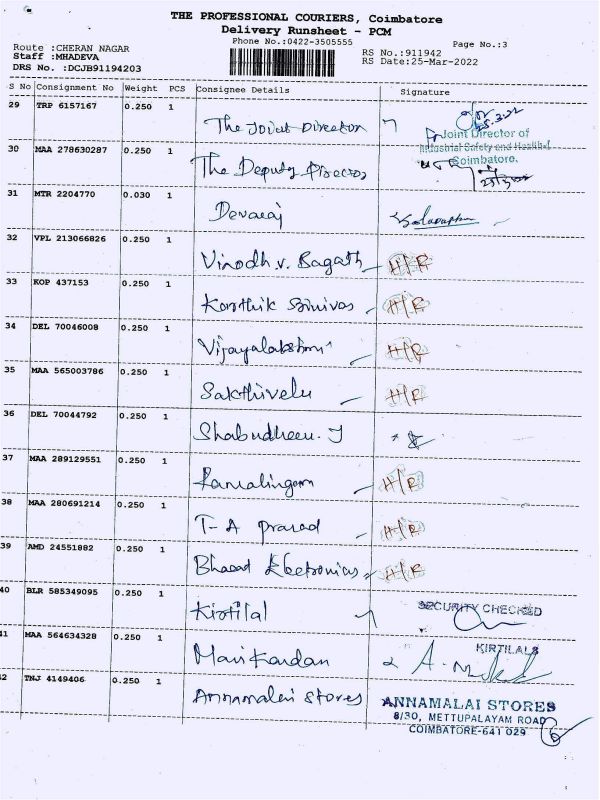 THE PROFESSIONAL COURIERS, Coimbatore
Delivery Runsheet - PCM
Phone No.:0422-3505555
Page No.:3
Route :CHERAN NAGAR
Staff :MHADEVA
DRS No. :DCJB91194203
RS No.:911942
RS Date:25-Mar-2022
S No Consignment No Weight PCS Consignee Details Signature
29 TRP 6157167 0.250 1 The Joint Director
Joint Director of
Industrial Safety and Health-I
Coimbatore.
30 MAA 278630287 0.250 1 The Deputy Director
31 MTR 2204770 0.030 1 Devaraj
32 VPL 213066826 0.250 1 Vinodh.v. Bagath H/R
33 KOP 437153 0.250 1 Karthik Srinivas H/R
34 DEL 70046008 0.250 1 Vijayalakshmi H/R
35 MAA 565003786 0.250 1 Sakthivelu H/R
36 DEL 70044792 0.250 1 Shabudheen. J
37 MAA 289129551 0.250 1 Ramalingam H/R
38 MAA 280691214 0.250 1 T- A prasad H/R
39 AMD 24551882 0.250 1 Bharat Electronics H/R
40 BLR 585349095 0.250 1 Kirtilal SECURITY CHECKED
KIRTILALS
41 MAA 564634328 0.250 1 Manikandan
42 TNJ 4149406 0.250 1 Annamalai Stores
ANNAMALAI STORES
8/30, METTUPALAYAM ROAD
COIMBATORE-641 029